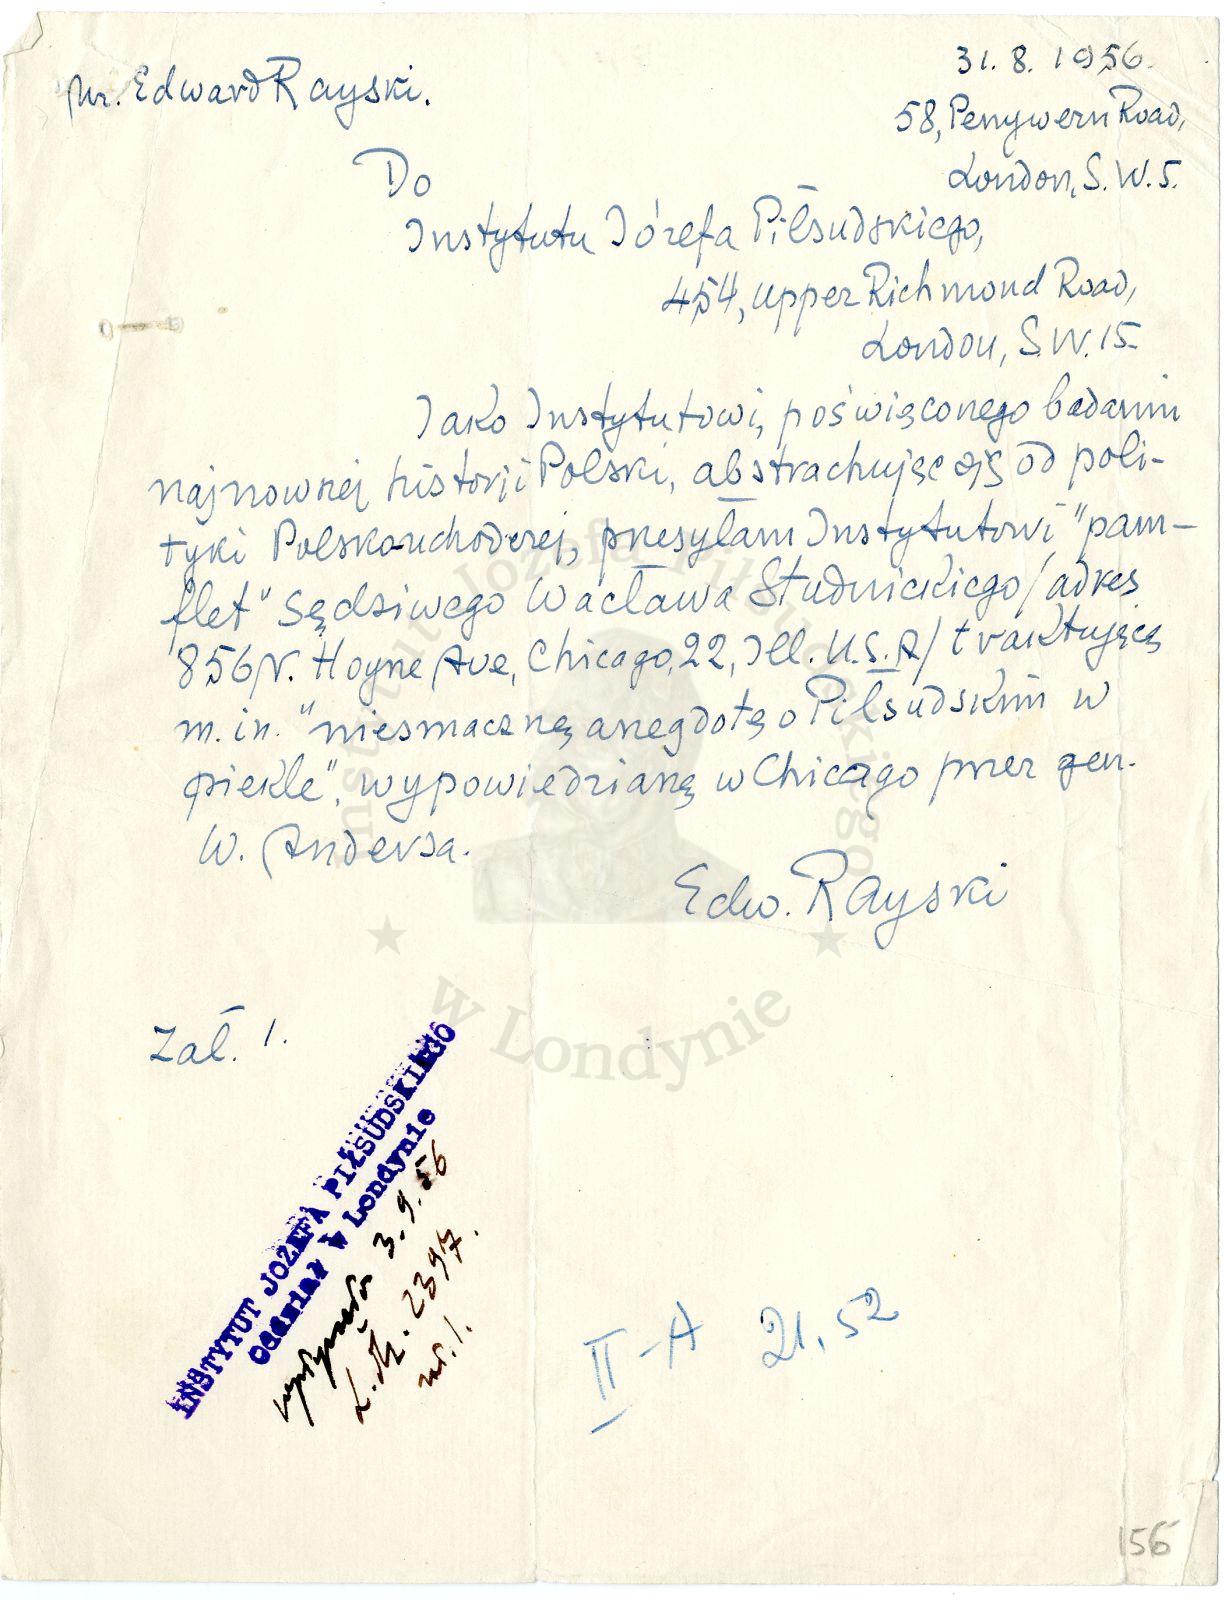 31.8.1956.
Mr. Edward Rayski.
58, Penywern Road,
London, S.W.5.
Do
Instytutu Józefa Piłsudskiego,
454, Upper Richmond Road,
London, S.W.15
Jako Instytutowi, poświęconego badaniu
najnowszej historji Polski, abstrachując się od poli-
tyki Polskouchodczej, przesyłam Instytutowi "pam-
flet" Sędziwego Wacława Studnickiego /adres
856 N. Hoyne Ave, Chicago, 22, Ill. U.S.A/ traktującą
m.in. "niesmaczną anegdotę o Piłsudskim w
piekle", wypowiedzianą w Chicago przez gen.
W. Andersa.
Edw. Rayski
Zał. 1.
INSTYTUT JOZEFA PIŁSUDSKIEGO
Oddział w Londynie
wpłynęło 3.9.56
L.dz. 2397.
zał. 1.
II-A 21.52
156
Instytut Józefa Piłsudskiego
w Londynie